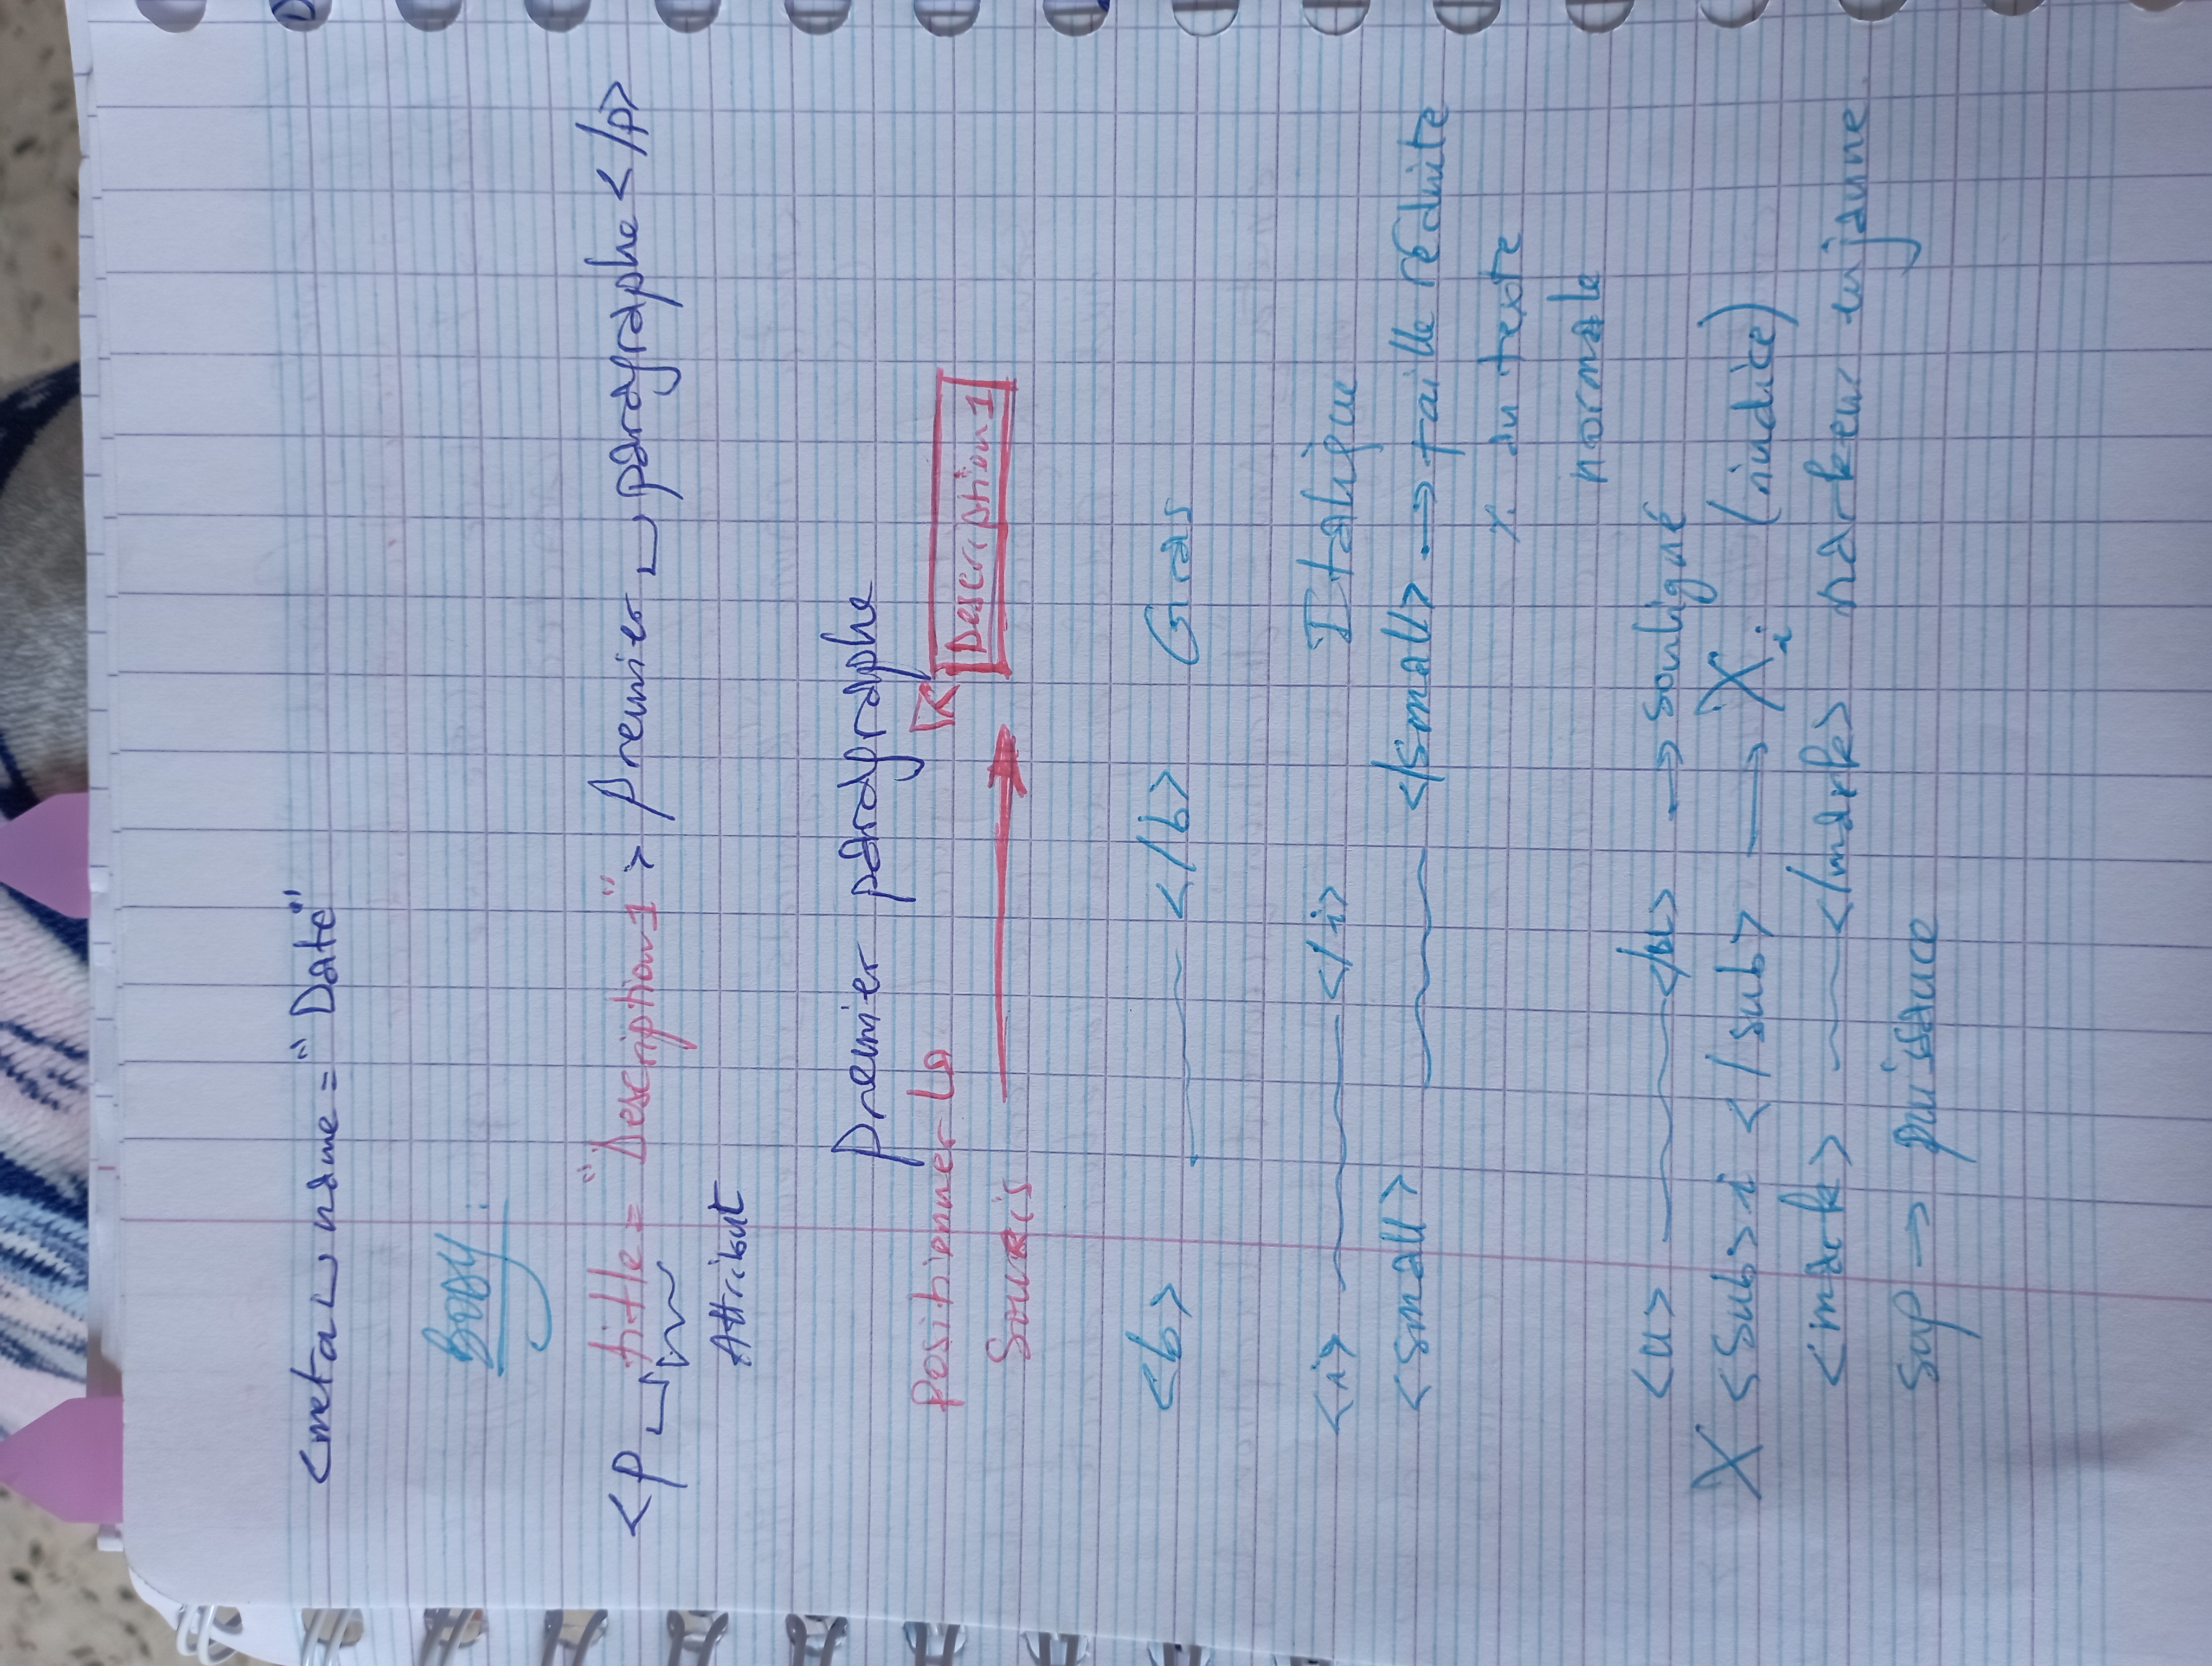 <meta ␣ name = "Date"
BODY :
<p ␣ title = "Description1"> Premier ␣ paragraphe </p>
Attribut
Premier paragraphe
Positionner la
Souris
Description1
<b> </b> Gras
<i> </i> Italique
<small> </small> → taille réduite
% du texte
normale
<u> </u> → souligné
X <sub> i </sub> → Xi (indice)
<mark> </mark> markeur en jaune
sup → puissance